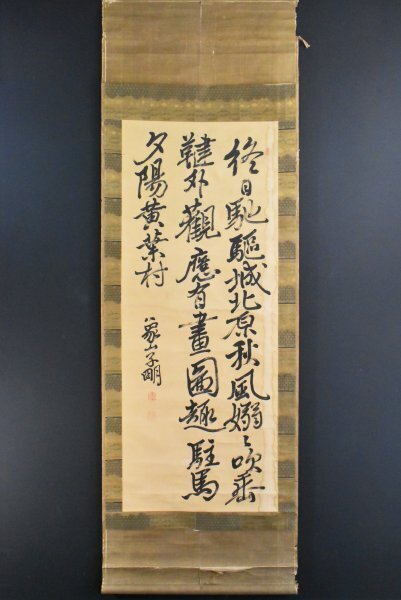 終日馳驅城北原秋風嫋〻吹垂
鞬外觀應有畫圖趣駐馬
夕陽黄葉村
象山子明